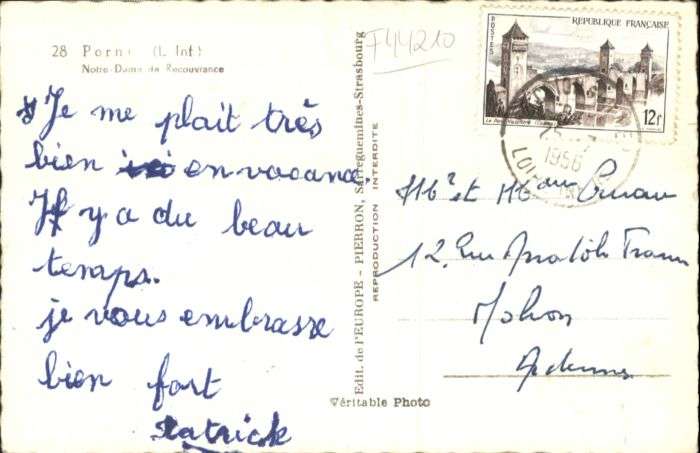 28 Pornic (L. Inf)
Notre-Dame de Recouvrance
Je me plait très
bien en vacance.
Il y a du beau
temps.
je vous embrasse
bien fort
Patrick
Edit. de l'EUROPE - PIERRON, Sarreguemines-Strasbourg
REPRODUCTION INTERDITE
Véritable Photo
F44210
POSTES
REPUBLIQUE FRANÇAISE
12f
1956
Mr et Mme
12, Rue Anatole France
Mohon
Ardennes